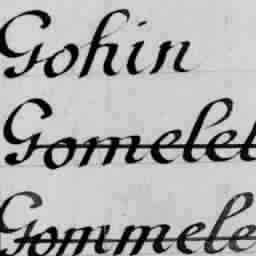 Gohin
Gomelet
Gommele